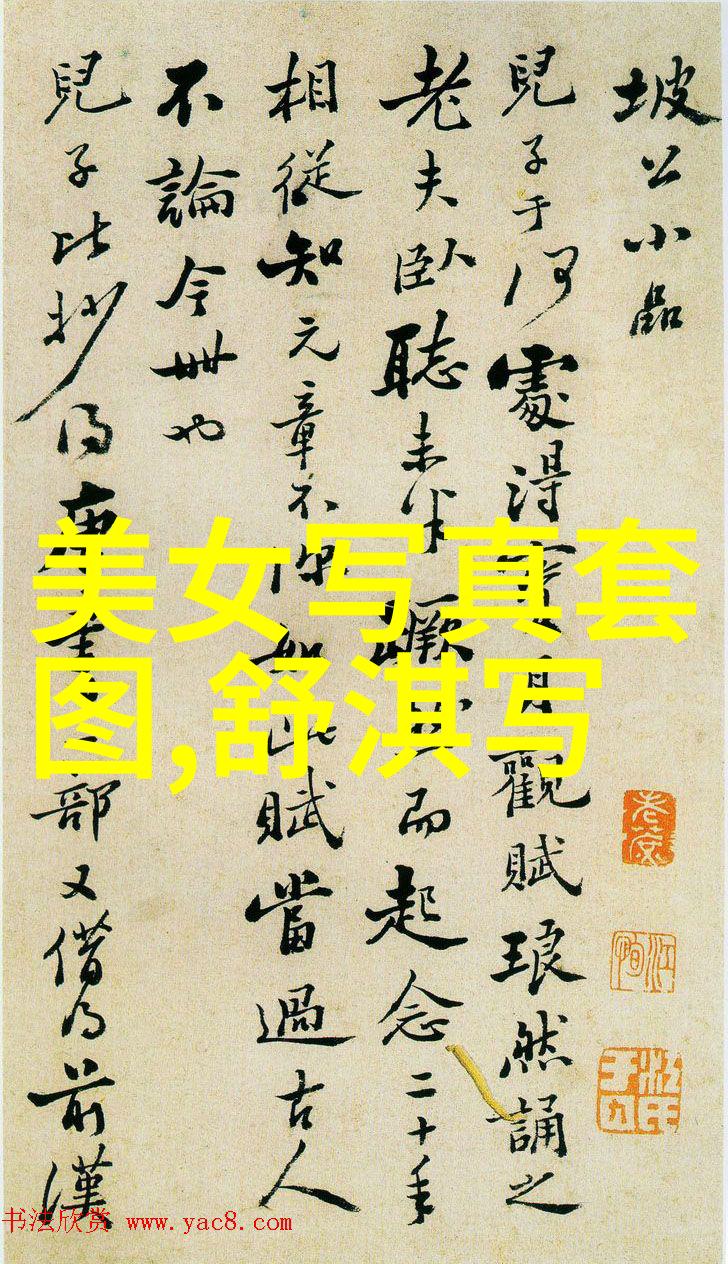 坡公小品
兒子于何處得寶月觀賦琅然誦之
老夫臥聽未半蹶然而起念二十年
相從知元章不如此賦當過古人
不論今世也
兒子比抄得唐書一部又借得前漢
美女写真套
图,舒淇写
书法欣赏 www.yac8.com